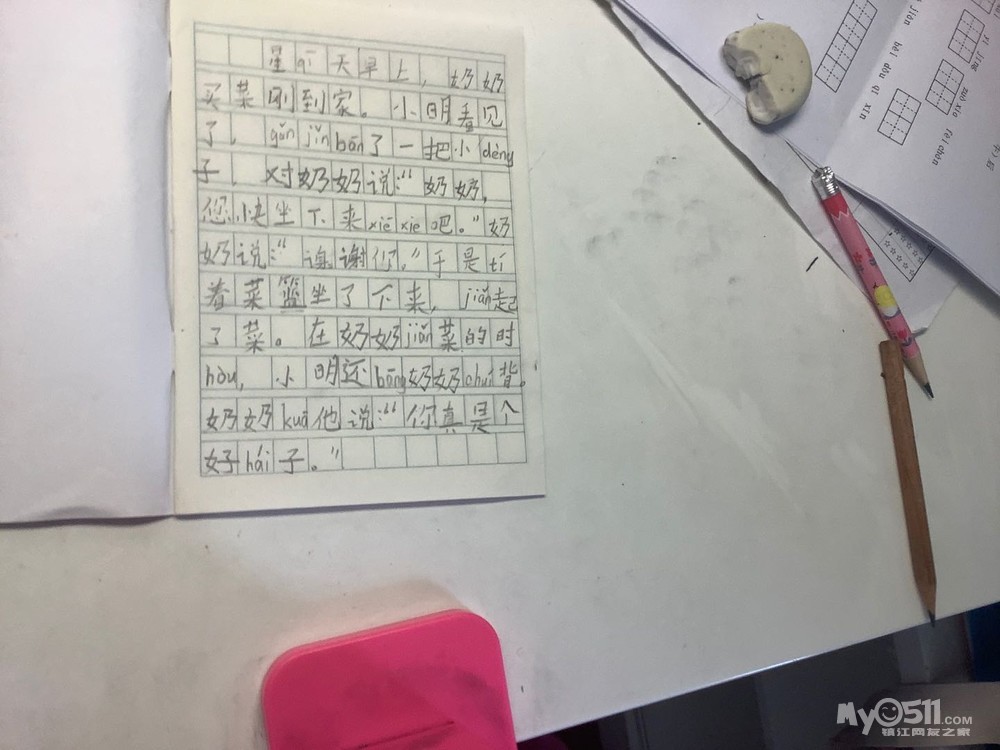 星qī天早上，奶奶
买菜刚到家。小明看见
了，gǎn jǐn bān了一把小dèng
子，对奶奶说：“奶奶，
您快坐下来xiē xie吧。”奶
奶说：“谢谢你。”于是tí
着菜篮坐了下来，jiǎn起
了菜。在奶奶jiǎn菜的时
hòu，小明还bāng奶奶chuí背。
奶奶kuā他说：“你真是个
好hái子。”
jiān
bèi dòng
qī xīn
zuò xià
fēi cháng
My0511.COM
镇江网友之家